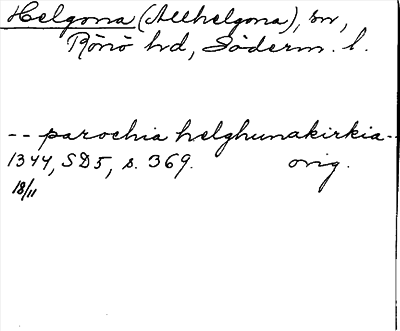 Helgona (Allhelgona), sn,
Rönö hd, Söderm. l.
-- parochia helghunakirkia --
1344, SD5, s. 369. orig.
18/11